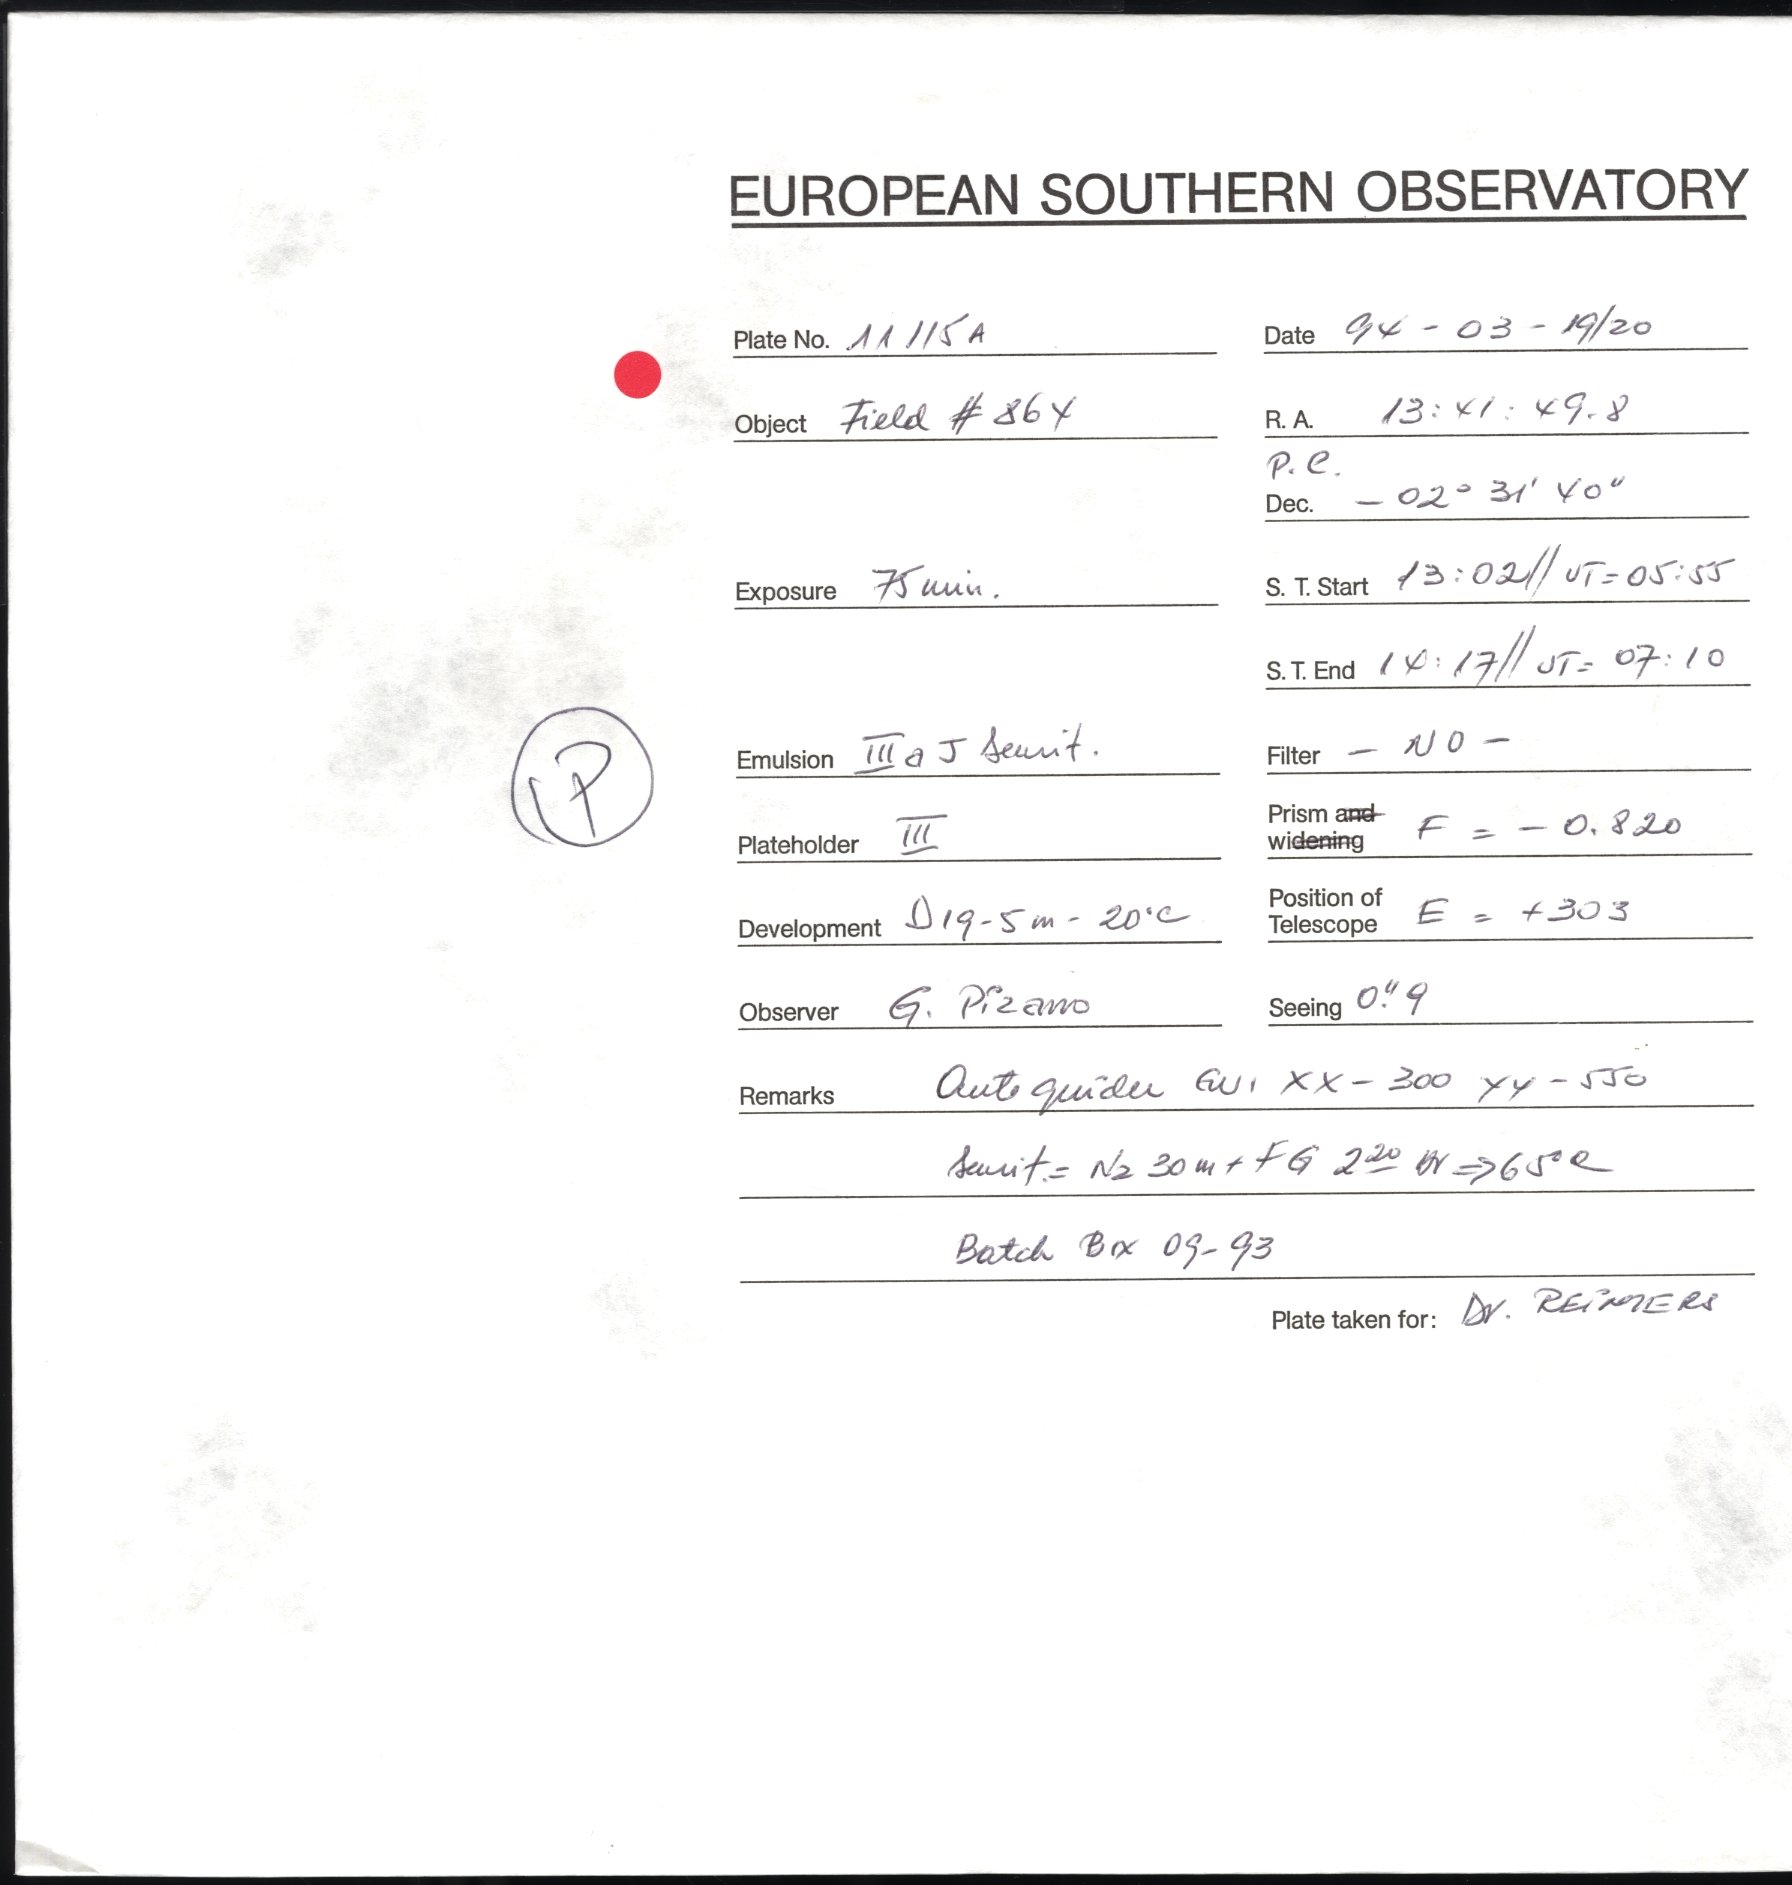 EUROPEAN SOUTHERN OBSERVATORY
Plate No. 11115A
Date 94 - 03 - 19/20
Object Field # 864
R. A. 13: 41: 49.8
P.C.
Dec. - 02° 31' 40"
Exposure 75 min.
S. T. Start 13:02// UT=05:55
S. T. End 14:17// UT= 07:10
Emulsion III a J Sensit.
Filter - NO -
Plateholder III
Prism and widening F = - 0.820
Development D19-5m - 20°C
Position of Telescope E = +303
Observer G. Pizarro
Seeing 0."9
Remarks Autoguider XX - 300 YY - 550
Sensit.= N2 30m + FG 2 20 Hr => 65°C
Batch Box 09-93
Plate taken for: Dr. REIMERS
P